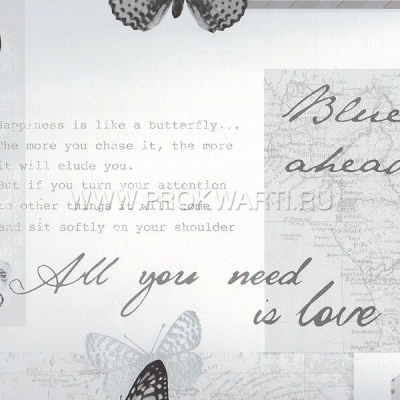 Happiness is like a butterfly...
The more you chase it, the more
it will elude you.
But if you turn your attention
to other things it will come
and sit softly on your shoulder
WWW.PROKWARTI.RU
Blue
ahead
All you need
is love